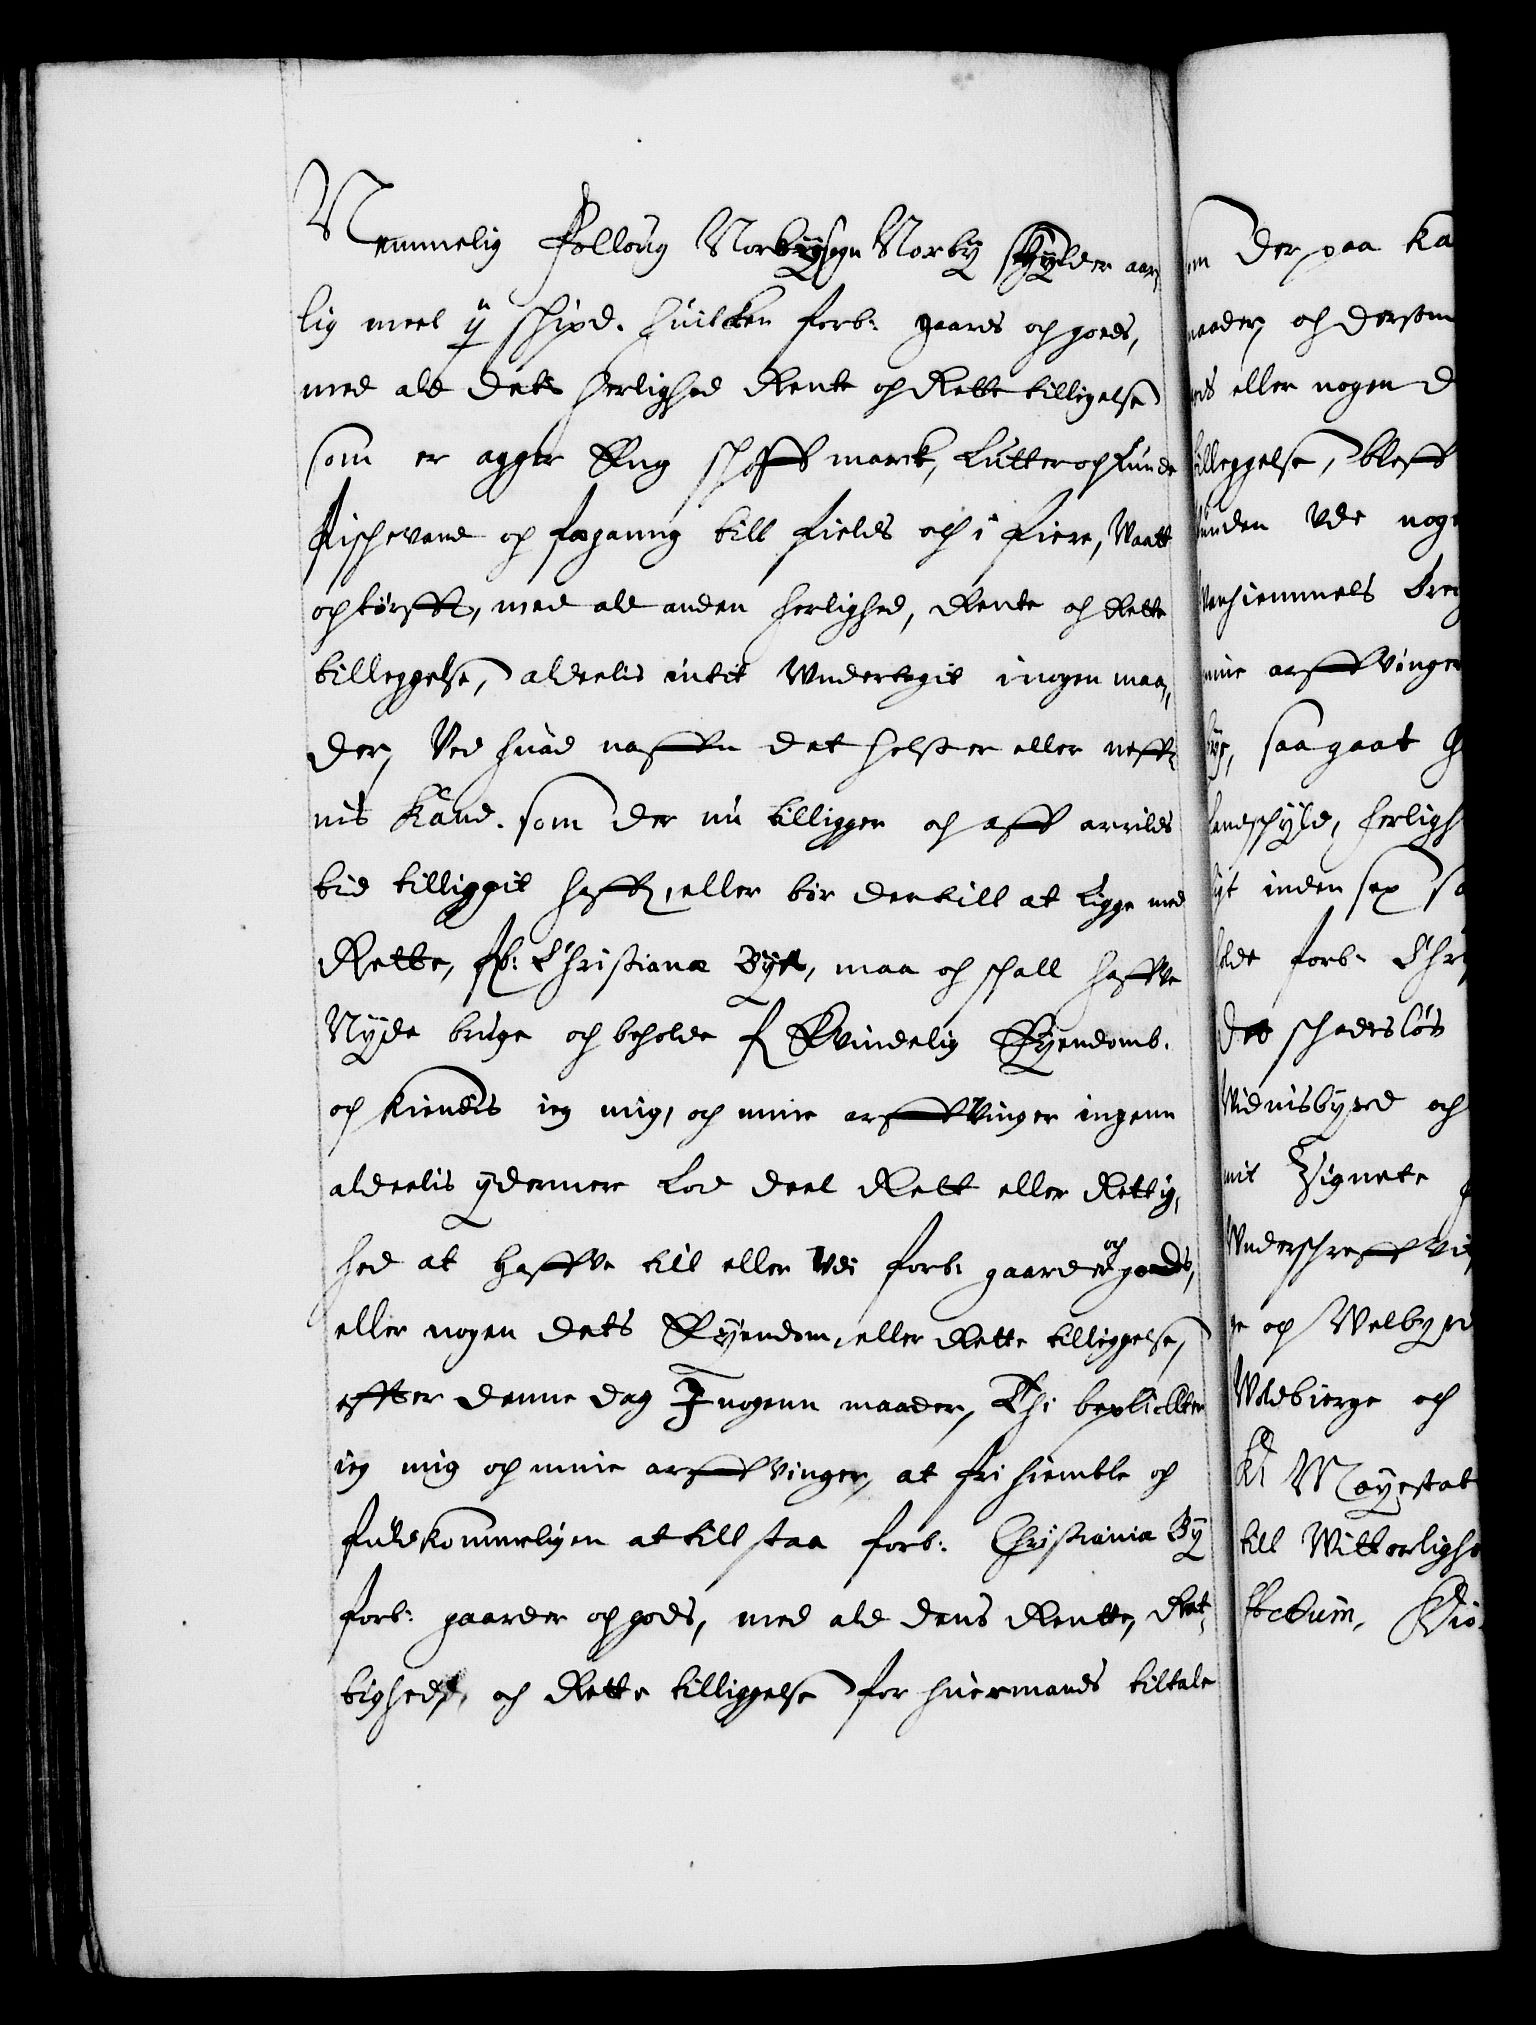 Nemmelig Folloug Norbysogn Norby schylder aar,
lig meel ij schipd. huilcken forb: gaard och goeds,
med ald dets herlighed Rente och Rette tilligelse
som er agger Eng schoff marck, Lutter och Lunde
fischevand och fæganng till fields och i fiere, Waatt
och tørft, med ald anden herlighed, Rente och Rette
tilleggelse, aldeelis intit Undertagit i nogen maa,
der, Ved huad naffn det helst er eller neff,
nis kand. som der nu tilligger och aff arrilds
tid tilliggit haffr, eller bør der till at ligge med
Rette, fb: Christianæ Bye, maa och schall haffve
Nyde bruge och beholde f Evindelig Eyendomb.
och kiendis ieg mig, och mine arffvinger ingenn
aldeelis ydermere Lod deel Rett eller Rettig,
hed at haffve till eller Vdi forb: gaarder och goeds,
eller nogen dets Eyendom, eller Rette tilliggelse,
effter denne dag I nogenn maader, Thi bepflicter
ieg mig och mine arffvinger, at fri hiemble och
fuldkommeligen at till staa forb: Christiania By
forb: gaarder och gods, med ald dens Rentte, Ret,
tighed, och Rette tilliggelse for huermands tiltale
der paa ka
maader, och dersom
eller nogen d
tilleggelse, bleff
Vde noge
Vanhiemmels
mine arffvinger
saa gaat
landschyld, herligh
inden sex
forb: Chri
det schadesløs
Vidnisbyrd och
mit Zignete
Underschreffvi
och Velbyrd
Woldbierge och
Kl Mayestat
till Witterlighe